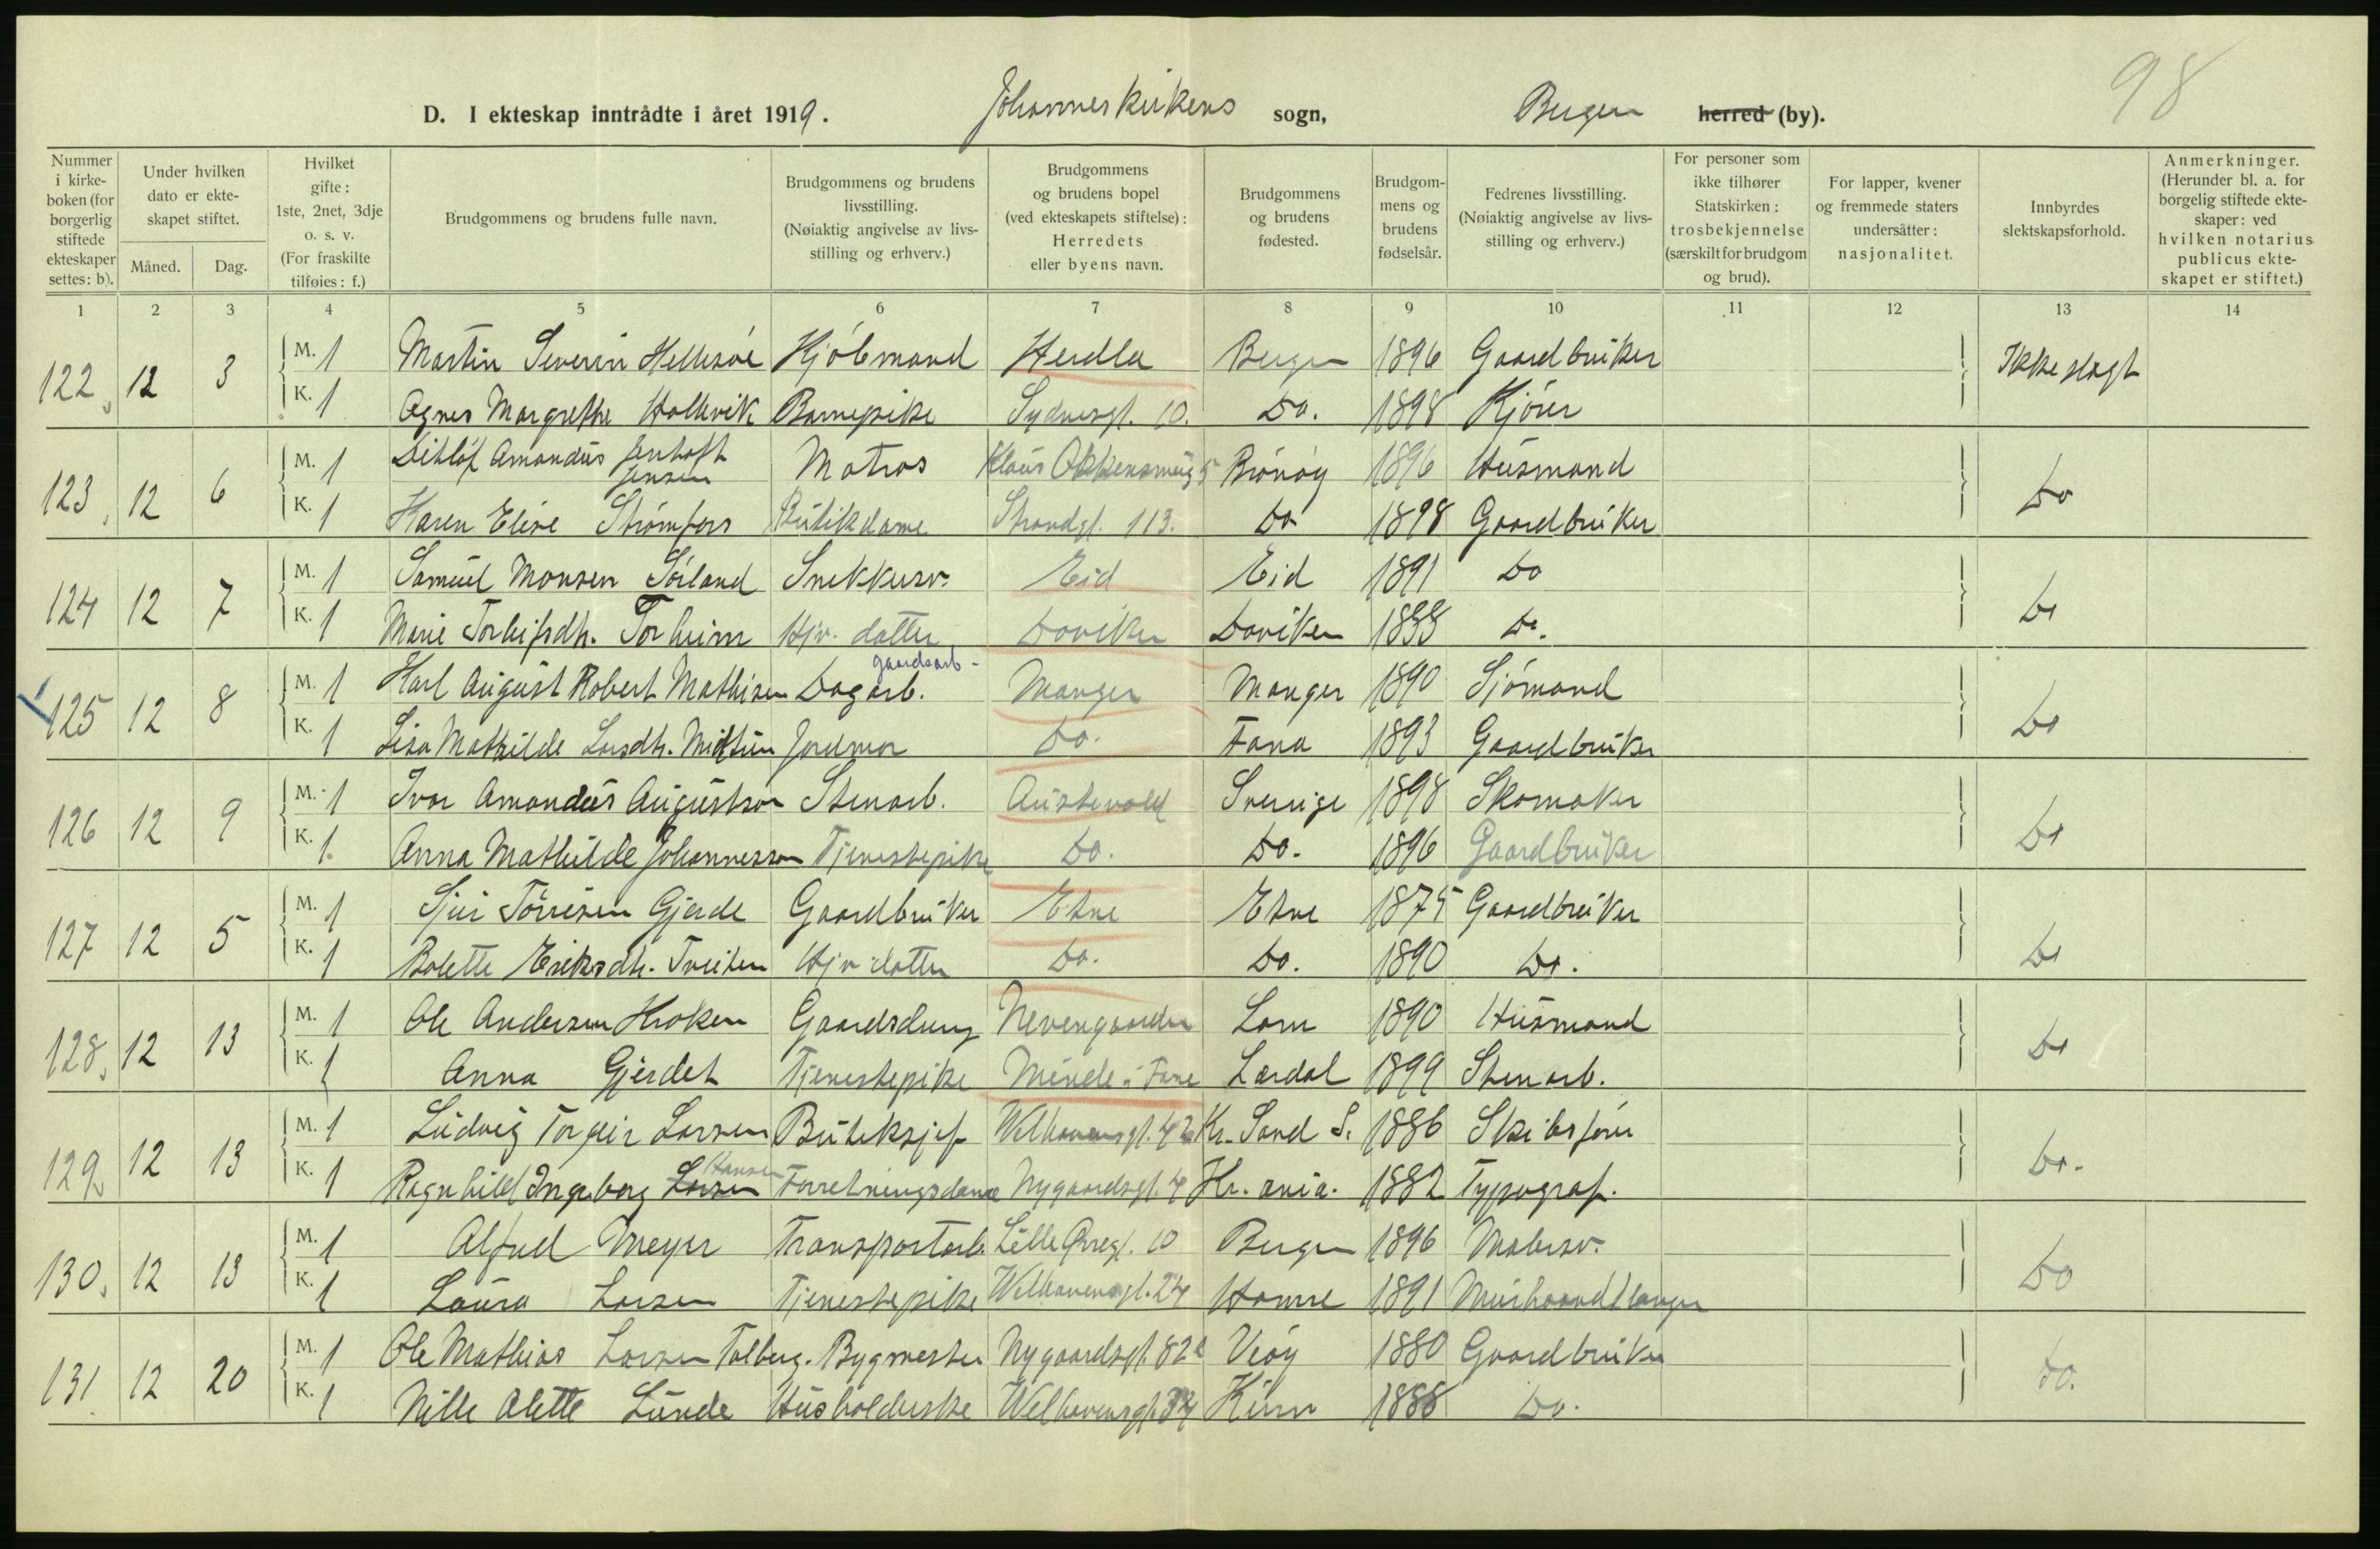 98
D. I ekteskap inntrådte i året 1919. Johanneskirkens sogn, Bergen herred (by).
Nummer i kirke-boken (for borgerlig stiftede ekteskaper settes: b).
Under hvilken dato er ekte-skapet stiftet.
Måned. Dag.
Hvilket gifte: 1ste, 2net, 3dje o. s. v. (For fraskilte tilføies: f.)
Brudgommens og brudens fulle navn.
Brudgommens og brudens livsstilling. (Nøiaktig angivelse av livs-stilling og erhverv.)
Brudgommens og brudens bopel (ved ekteskapets stiftelse): Herredets eller byens navn.
Brudgommens og brudens fødested.
Brudgom-mens og brudens fødselsår.
Fedrenes livsstilling. (Nøiaktig angivelse av livs-stilling og erhverv.)
For personer som ikke tilhører Statskirken: trosbekjennelse (særskilt for brudgom og brud).
For lapper, kvener og fremmede staters undersåtter: nasjonalitet.
Innbyrdes slektskapsforhold.
Anmerkninger. (Herunder bl. a. for borgelig stiftede ekte-skaper: ved hvilken notarius publicus ekte-skapet er stiftet.)
1 2 3 4 5 6 7 8 9 10 11 12 13 14
122, 12 3 M. 1 Martin Severin Hellesöe Hjölmand Herdla Bergen 1896 Gaardbruker Ikke slegt
K. 1 Agnes Margrethe Hallevik Barnepike Sydnesgt. 10. Do. 1898 Kjörer
123, 12 6 M. 1 Ditlöf Amandus Jenhoft Jensen Matros Klaus Okkensmug 5 Brönöy 1896 Husmand Do
K. 1 Karen Elise Strømfors Butikdame Strandgt. 113. Do 1898 Gaardbruker
124 12 7 M. 1 Samuel Monsen Sörland Snekkersv. Eid Eid 1891 Do Do
K. 1 Marie Torleifsdtr. Torheim Hjv. datter Daviken Daviken 1888 Do.
125 12 8 M. 1 Karl August Robert Mathisen Dagarb. gaardsarb - Manger Manger 1890 Sjömand Do
K. 1 Lisa Mathilde Larsdtr. Midtun Jordmor Do. Fana 1893 Gaardbruker
126 12 9 M. 1 Ivar Amandus Augustson Stenarb. Austevold Sverige 1898 Skomaker Do
K. 1. Anna Mathilde Johannesson Tjenestepike Do. Do. 1896 Gaardbruker
127 12 5 M. 1 Sjur Törresen Gjerde Gaardbruker Etne Etne 1875 Gaardbruker Do
K. 1 Bolette Eriksdtr. Tveiten Hjv datter Do. Do. 1890 Do.
128, 12 13 M. 1 Ole Andersen Kroken Gaardsdreng Nevengaarden Lom 1890 Husmand Do
K. 1 Anna Gjerdet Tjenestepike Minde i Fane Lærdal 1899 Stenarb.
129 12 13 M. 1 Ludvig Torgeir Larsen Butiksjef Welhavensgt. 42 Kr. Sand S. 1886 Skibsförer Do.
K. 1 Ragnhild Ingeborg Larsen Hansen Forretningsdame Nygaardsgt. 4 Kr. ania. 1882 Typograf.
130, 12 13 M. 1 Alfred Meyer Transportarb. Lille Øvregt. 10 Bergen 1896 Malersv. Do
K. 1 Laura Larsen Tjenestepike Welhavensgt. 24 Hamre 1891 Murhaandlanger
131 12 20 M. 1 Ole Mathias Larsen Talberg. Bygmester Nygaardsgt. 82 Veöy 1880 Gaardbruker Do.
K. 1 Nille Alette Lunde Husholderske Welhavensgt. 34 Kinn 1888 Do.